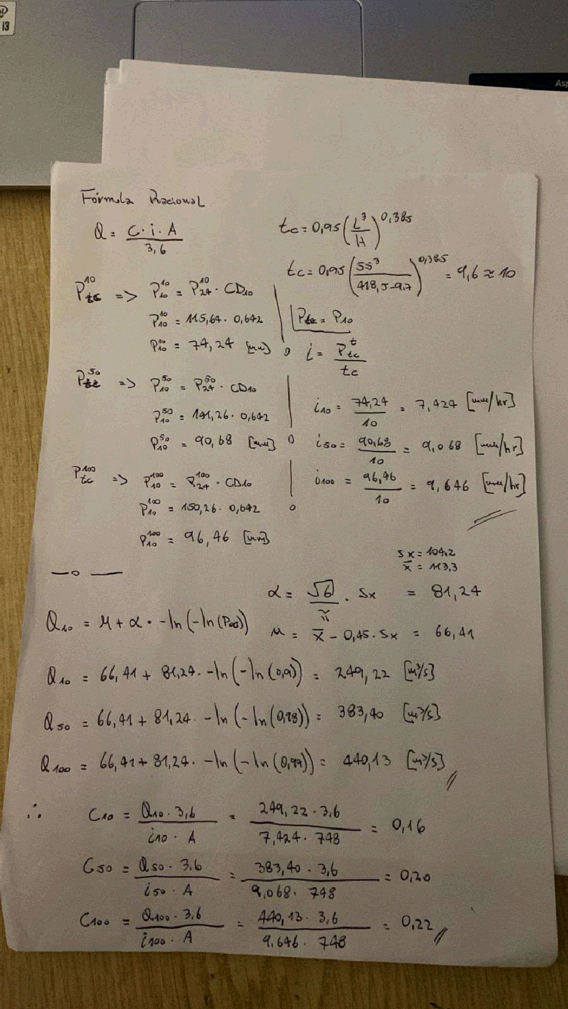 i3
Asp
Fórmula Racional
Q = C·i·A / 3,6
tc = 0,95 (L³/H)^0,385
tc = 0,95 (55³ / 418,5-9,7)^0,385 = 9,6 ≈ 10
P10 tc => P10 10 = P10 24 · CD10
P10 10 = 115,64 · 0,642
P10 10 = 74,24 [mm]
Ptc = P10
i = Pt tc / tc
P50 tc => P50 10 = P50 24 · CD10
P50 10 = 141,26 · 0,642
P50 10 = 90,68 [mm]
i10 = 74,24 / 10 = 7,424 [mm/hr]
i50 = 90,68 / 10 = 9,068 [mm/hr]
i100 = 96,46 / 10 = 9,646 [mm/hr]
P100 tc => P100 10 = P100 24 · CD10
P100 10 = 150,26 · 0,642
P100 10 = 96,46 [mm]
Sx = 104,2
x̄ = 113,3
α = √6 / π · Sx = 81,24
μ = x̄ - 0,45 · Sx = 66,41
Q10 = μ + α · -ln(-ln(
Q10 = 66,41 + 81,24 · -ln(-ln(0,9)) = 249,22 [m³/s]
Q50 = 66,41 + 81,24 · -ln(-ln(0,98)) = 383,40 [m³/s]
Q100 = 66,41 + 81,24 · -ln(-ln(0,99)) = 440,13 [m³/s]
∴ C10 = Q10 · 3,6 / i10 · A = 249,22 · 3,6 / 7,424 · 748 = 0,16
C50 = Q50 · 3,6 / i50 · A = 383,40 · 3,6 / 9,068 · 748 = 0,20
C100 = Q100 · 3,6 / i100 · A = 440,13 · 3,6 / 9,646 · 748 = 0,22